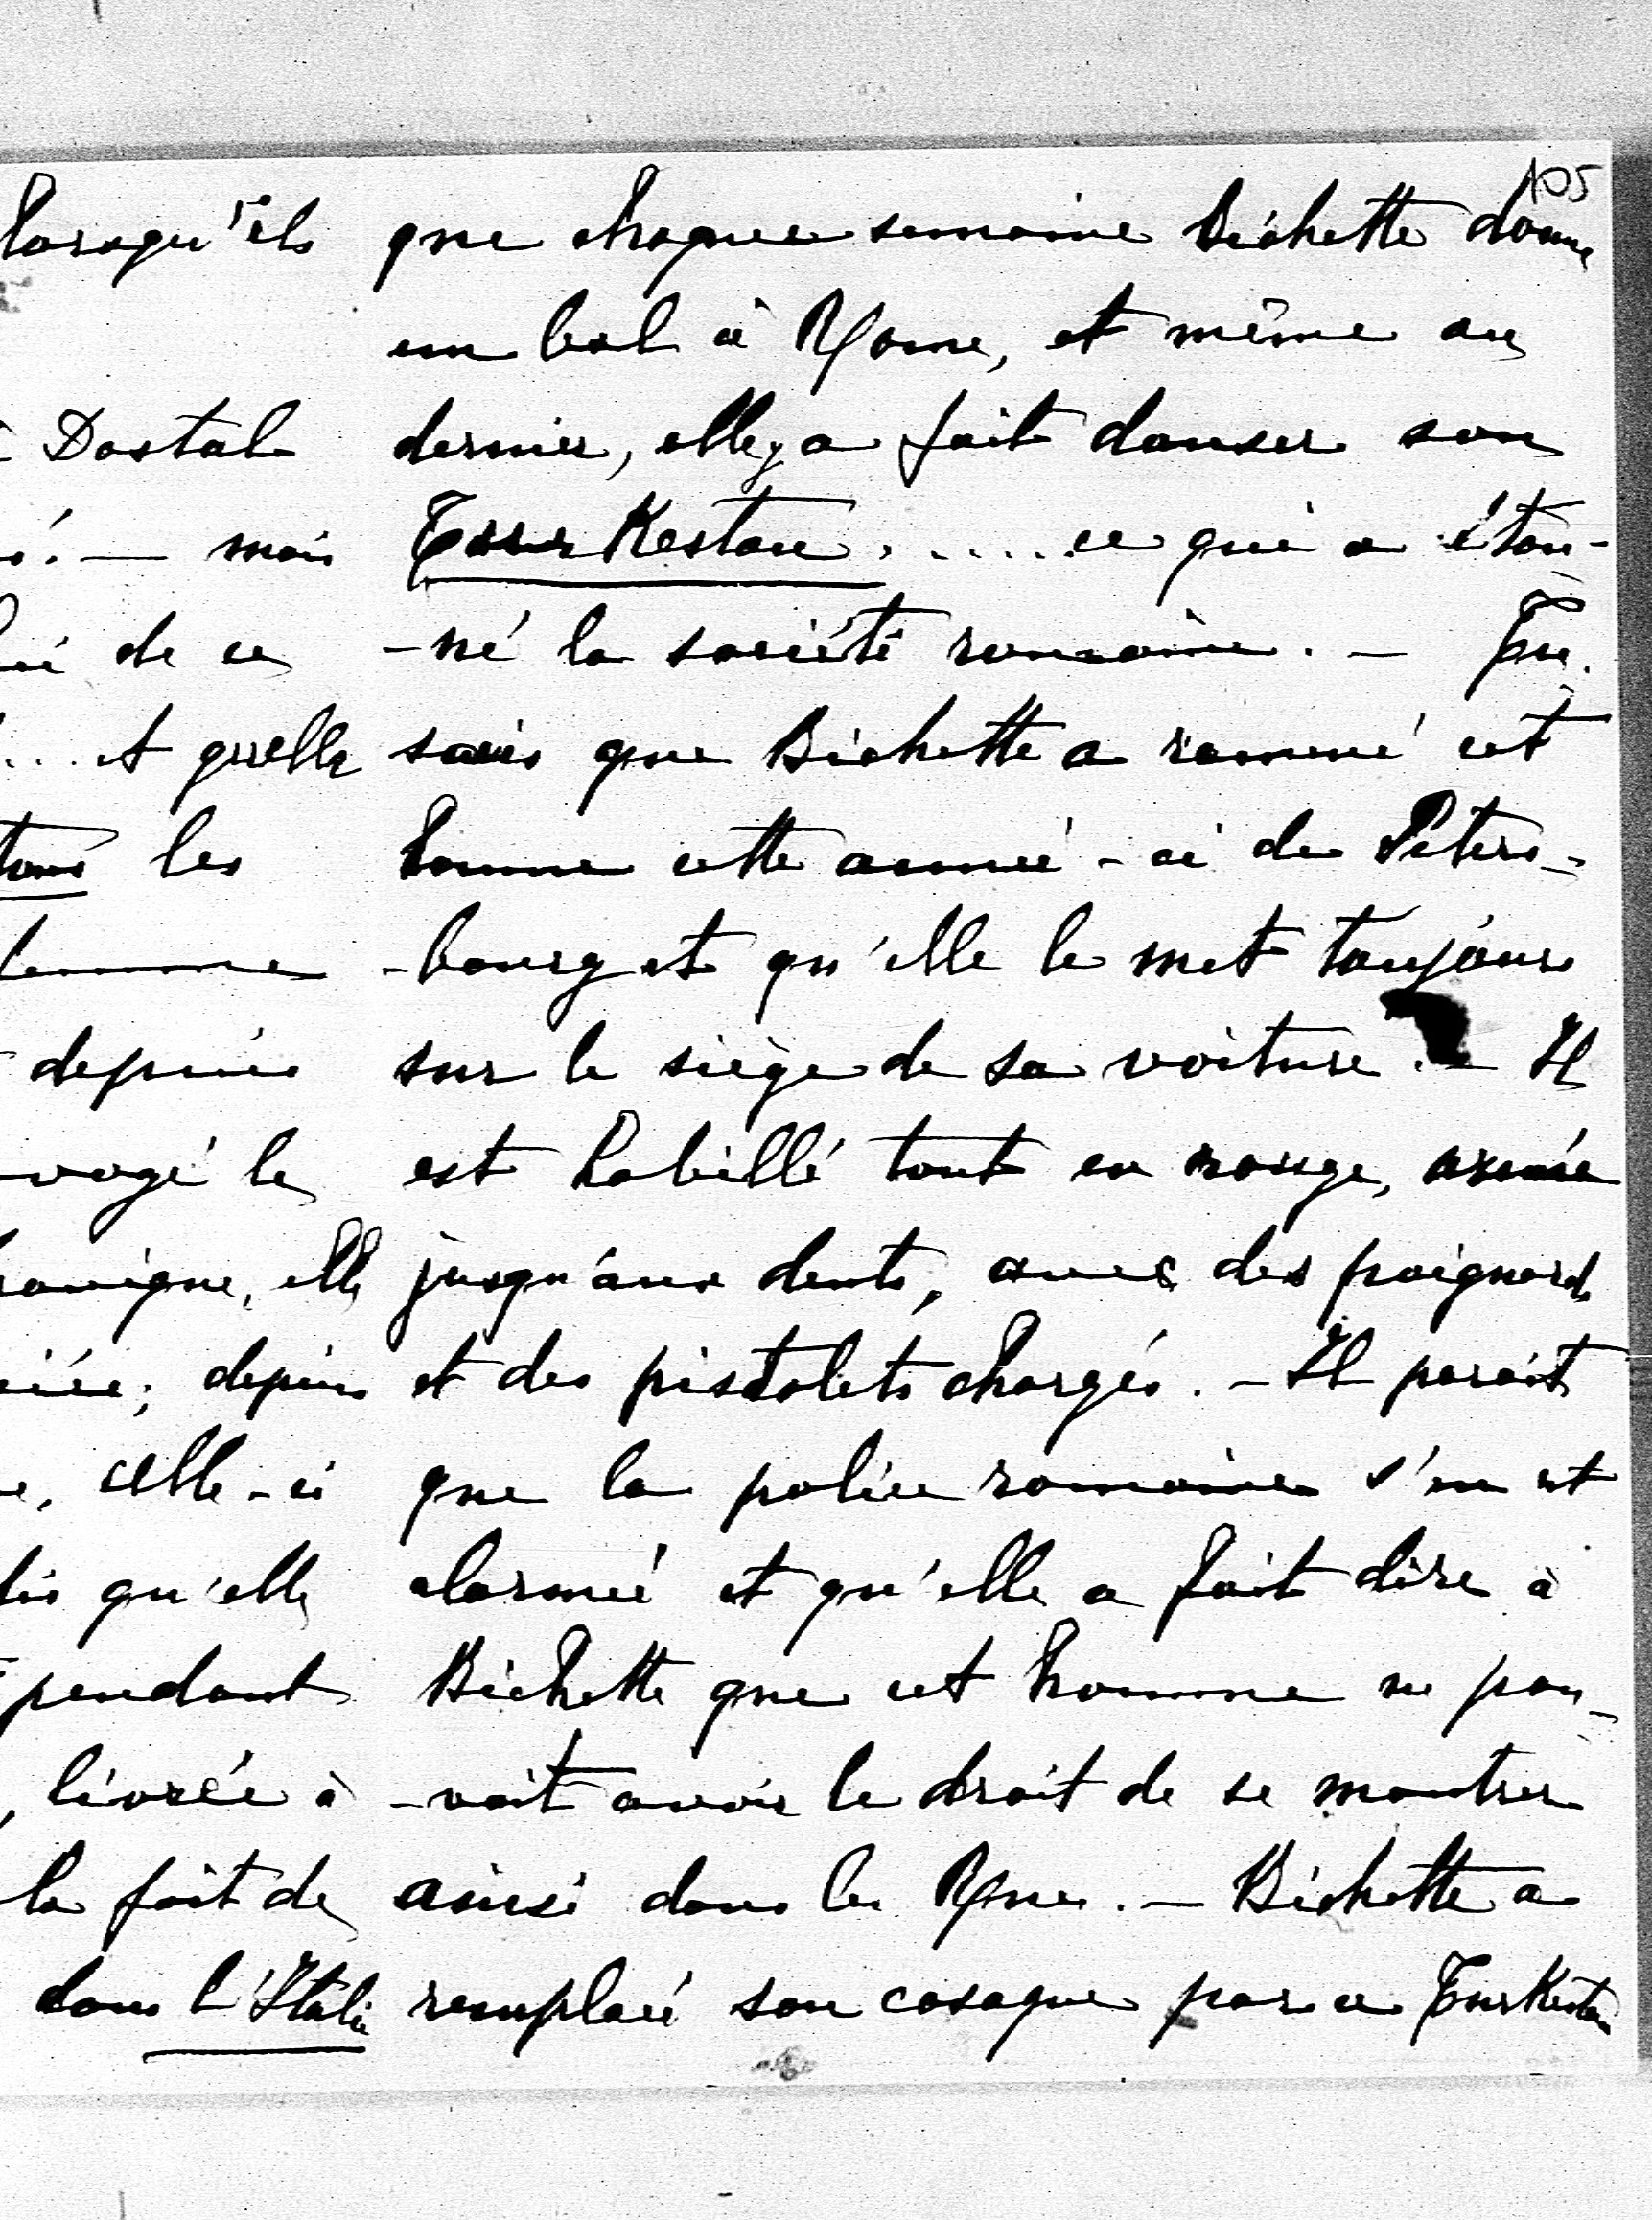 105
lorsqu'ils
Dostal
mais
de ce
... et quelle
les
depuis
le
elle
depuis
celle-ci
qu'elle
pendant
livrée à
la fait de
dans l'Italie
que chaque semaine Bichette donne
un bal à Rome, et même au
dernier, elle y a fait danser son
Turkestan ..... ce qui a éton-
-né la société romaine. — Tu
sais que Bichette a ramené cet
homme cette année-ci de Péters-
-bourg et qu'elle le met toujours
sur le siège de sa voiture. — Il
est habillé tout en rouge, armé
jusqu'aux dents, avec des poignards
et des pistolets chargés. — Il parait
que la police romaine s'en est
alarmée et qu'elle a fait dire à
Bichette que cet homme ne pou-
-vait avoir le droit de se montrer
ainsi dans les Rues. — Bichette a
remplacé son cosaque par ce Turkestan